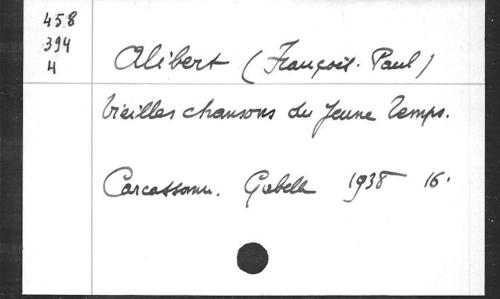 458
394
4
Alibert (François-Paul)
Vieilles chansons du Jeune Temps.
Carcassonne. Gabelle 1938 16.